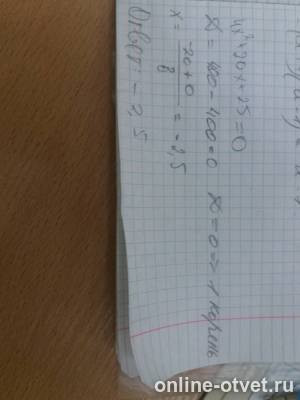 4x²+20x+25=0
D = 400-400=0 D=0 => 1 корень
x = -20+0/8 = -2,5
Ответ: -2,5
online-otvet.ru